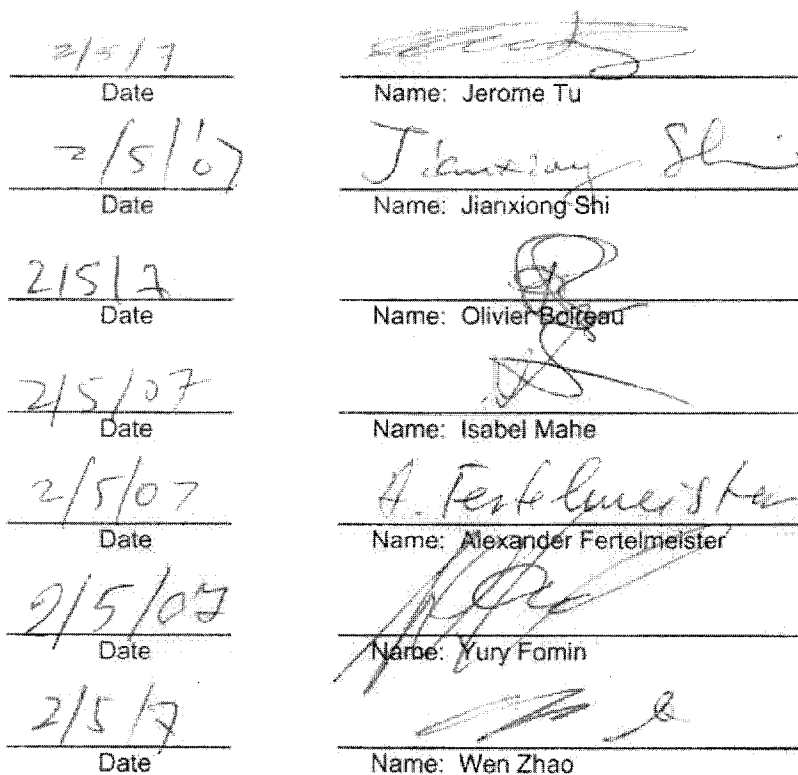 2/5/7
Date Name: Jerome Tu
2/5/'07 Jianxiong Shi
Date Name: Jianxiong Shi
2/5/7
Date Name: Olivier Boireau
2/5/07
Date Name: Isabel Mahe
2/5/07 A. Fertelmeister
Date Name: Alexander Fertelmeister
2/5/07
Date Name: Yury Fomin
2/5/7
Date Name: Wen Zhao